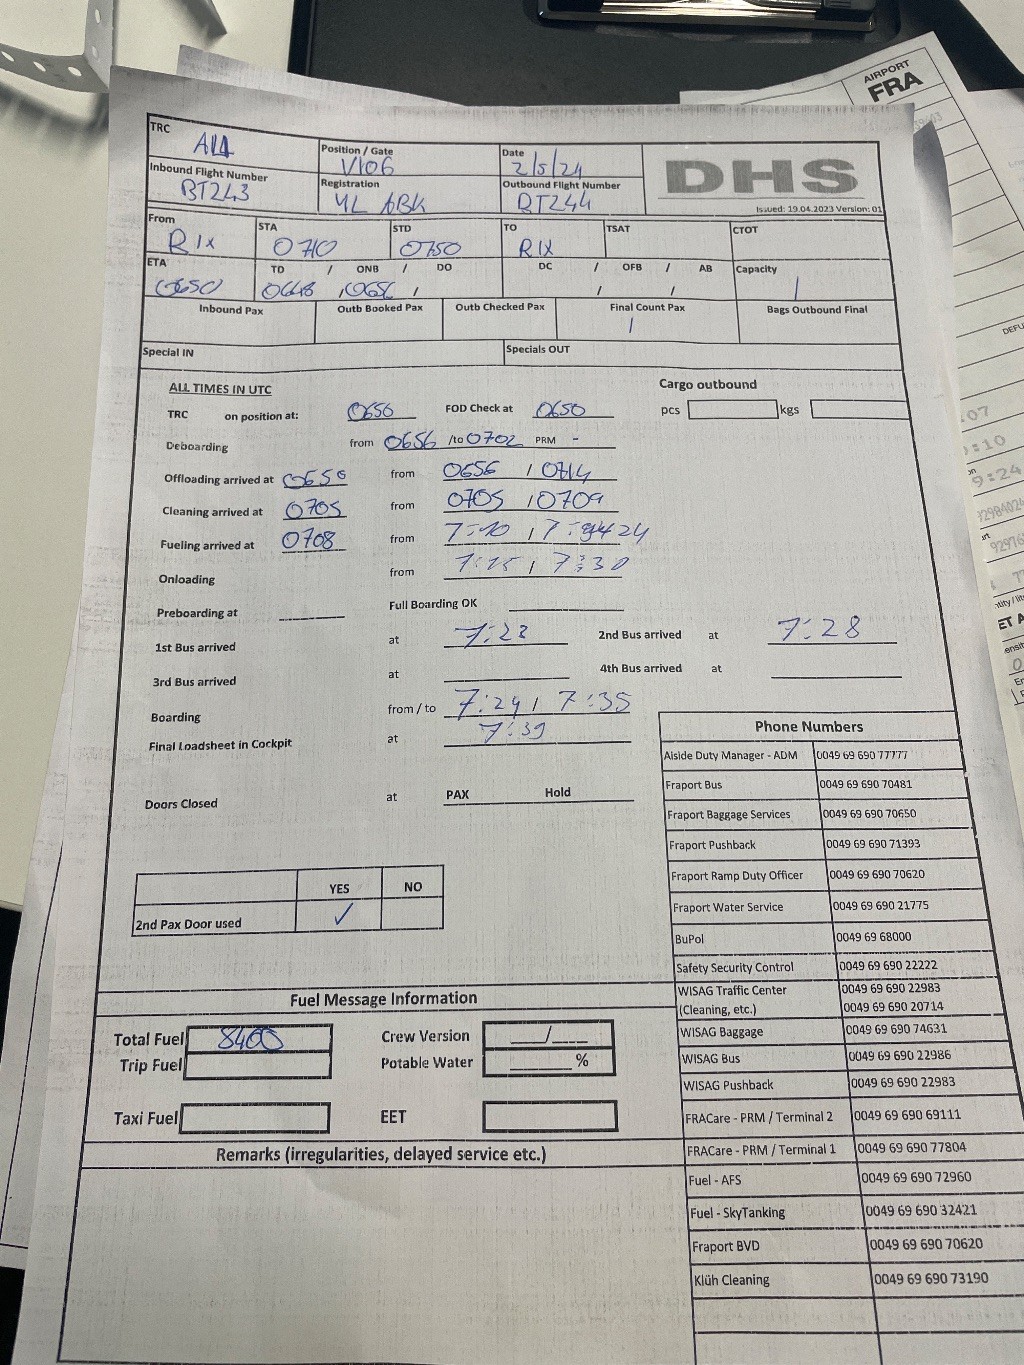 AIRPORT
FRA
TRC
Position / Gate V106
Date 2/5/24
DHS
Inbound Flight Number BT243
Registration YL ABK
Outbound Flight Number BT244
Issued: 19.04.2023 Version: 01
From RIX STA 0710 STD 0750 TO RIX TSAT CTOT
ETA 0650 TD / ONB / DO DC / OFB / AB Capacity
0648 / / / /
Inbound Pax Outb Booked Pax Outb Checked Pax Final Count Pax Bags Outbound Final
/
Special IN Specials OUT
ALL TIMES IN UTC Cargo outbound
TRC on position at: 0650 FOD Check at 0650 pcs kgs
Deboarding from 0656 /to 0702 PRM -
Offloading arrived at 0650 from 0656 / 0714
Cleaning arrived at 0705 from 0705 / 0709
Fueling arrived at 0708 from 7:10 / 24
Onloading from 7:15 / 7:30
Preboarding at Full Boarding OK
1st Bus arrived at 7:23 2nd Bus arrived at 7:28
3rd Bus arrived at 4th Bus arrived at
Boarding from / to 7:24 / 7:35
Final Loadsheet in Cockpit at 7:39
Doors Closed at PAX Hold
YES NO
2nd Pax Door used ✓
Phone Numbers
Aiside Duty Manager - ADM 0049 69 690 77777
Fraport Bus 0049 69 690 70481
Fraport Baggage Services 0049 69 690 70650
Fraport Pushback 0049 69 690 71393
Fraport Ramp Duty Officer 0049 69 690 70620
Fraport Water Service 0049 69 690 21775
BuPol 0049 69 68000
Safety Security Control 0049 69 690 22222
WISAG Traffic Center 0049 69 690 22983
(Cleaning, etc.) 0049 69 690 20714
WISAG Baggage 0049 69 690 74631
WISAG Bus 0049 69 690 22986
WISAG Pushback 0049 69 690 22983
FRACare - PRM / Terminal 2 0049 69 690 69111
FRACare - PRM / Terminal 1 0049 69 690 77804
Fuel - AFS 0049 69 690 72960
Fuel - SkyTanking 0049 69 690 32421
Fraport BVD 0049 69 690 70620
Klüh Cleaning 0049 69 690 73190
Fuel Message Information
Total Fuel 8400 Crew Version /
Trip Fuel Potable Water %
Taxi Fuel EET
Remarks (irregularities, delayed service etc.)